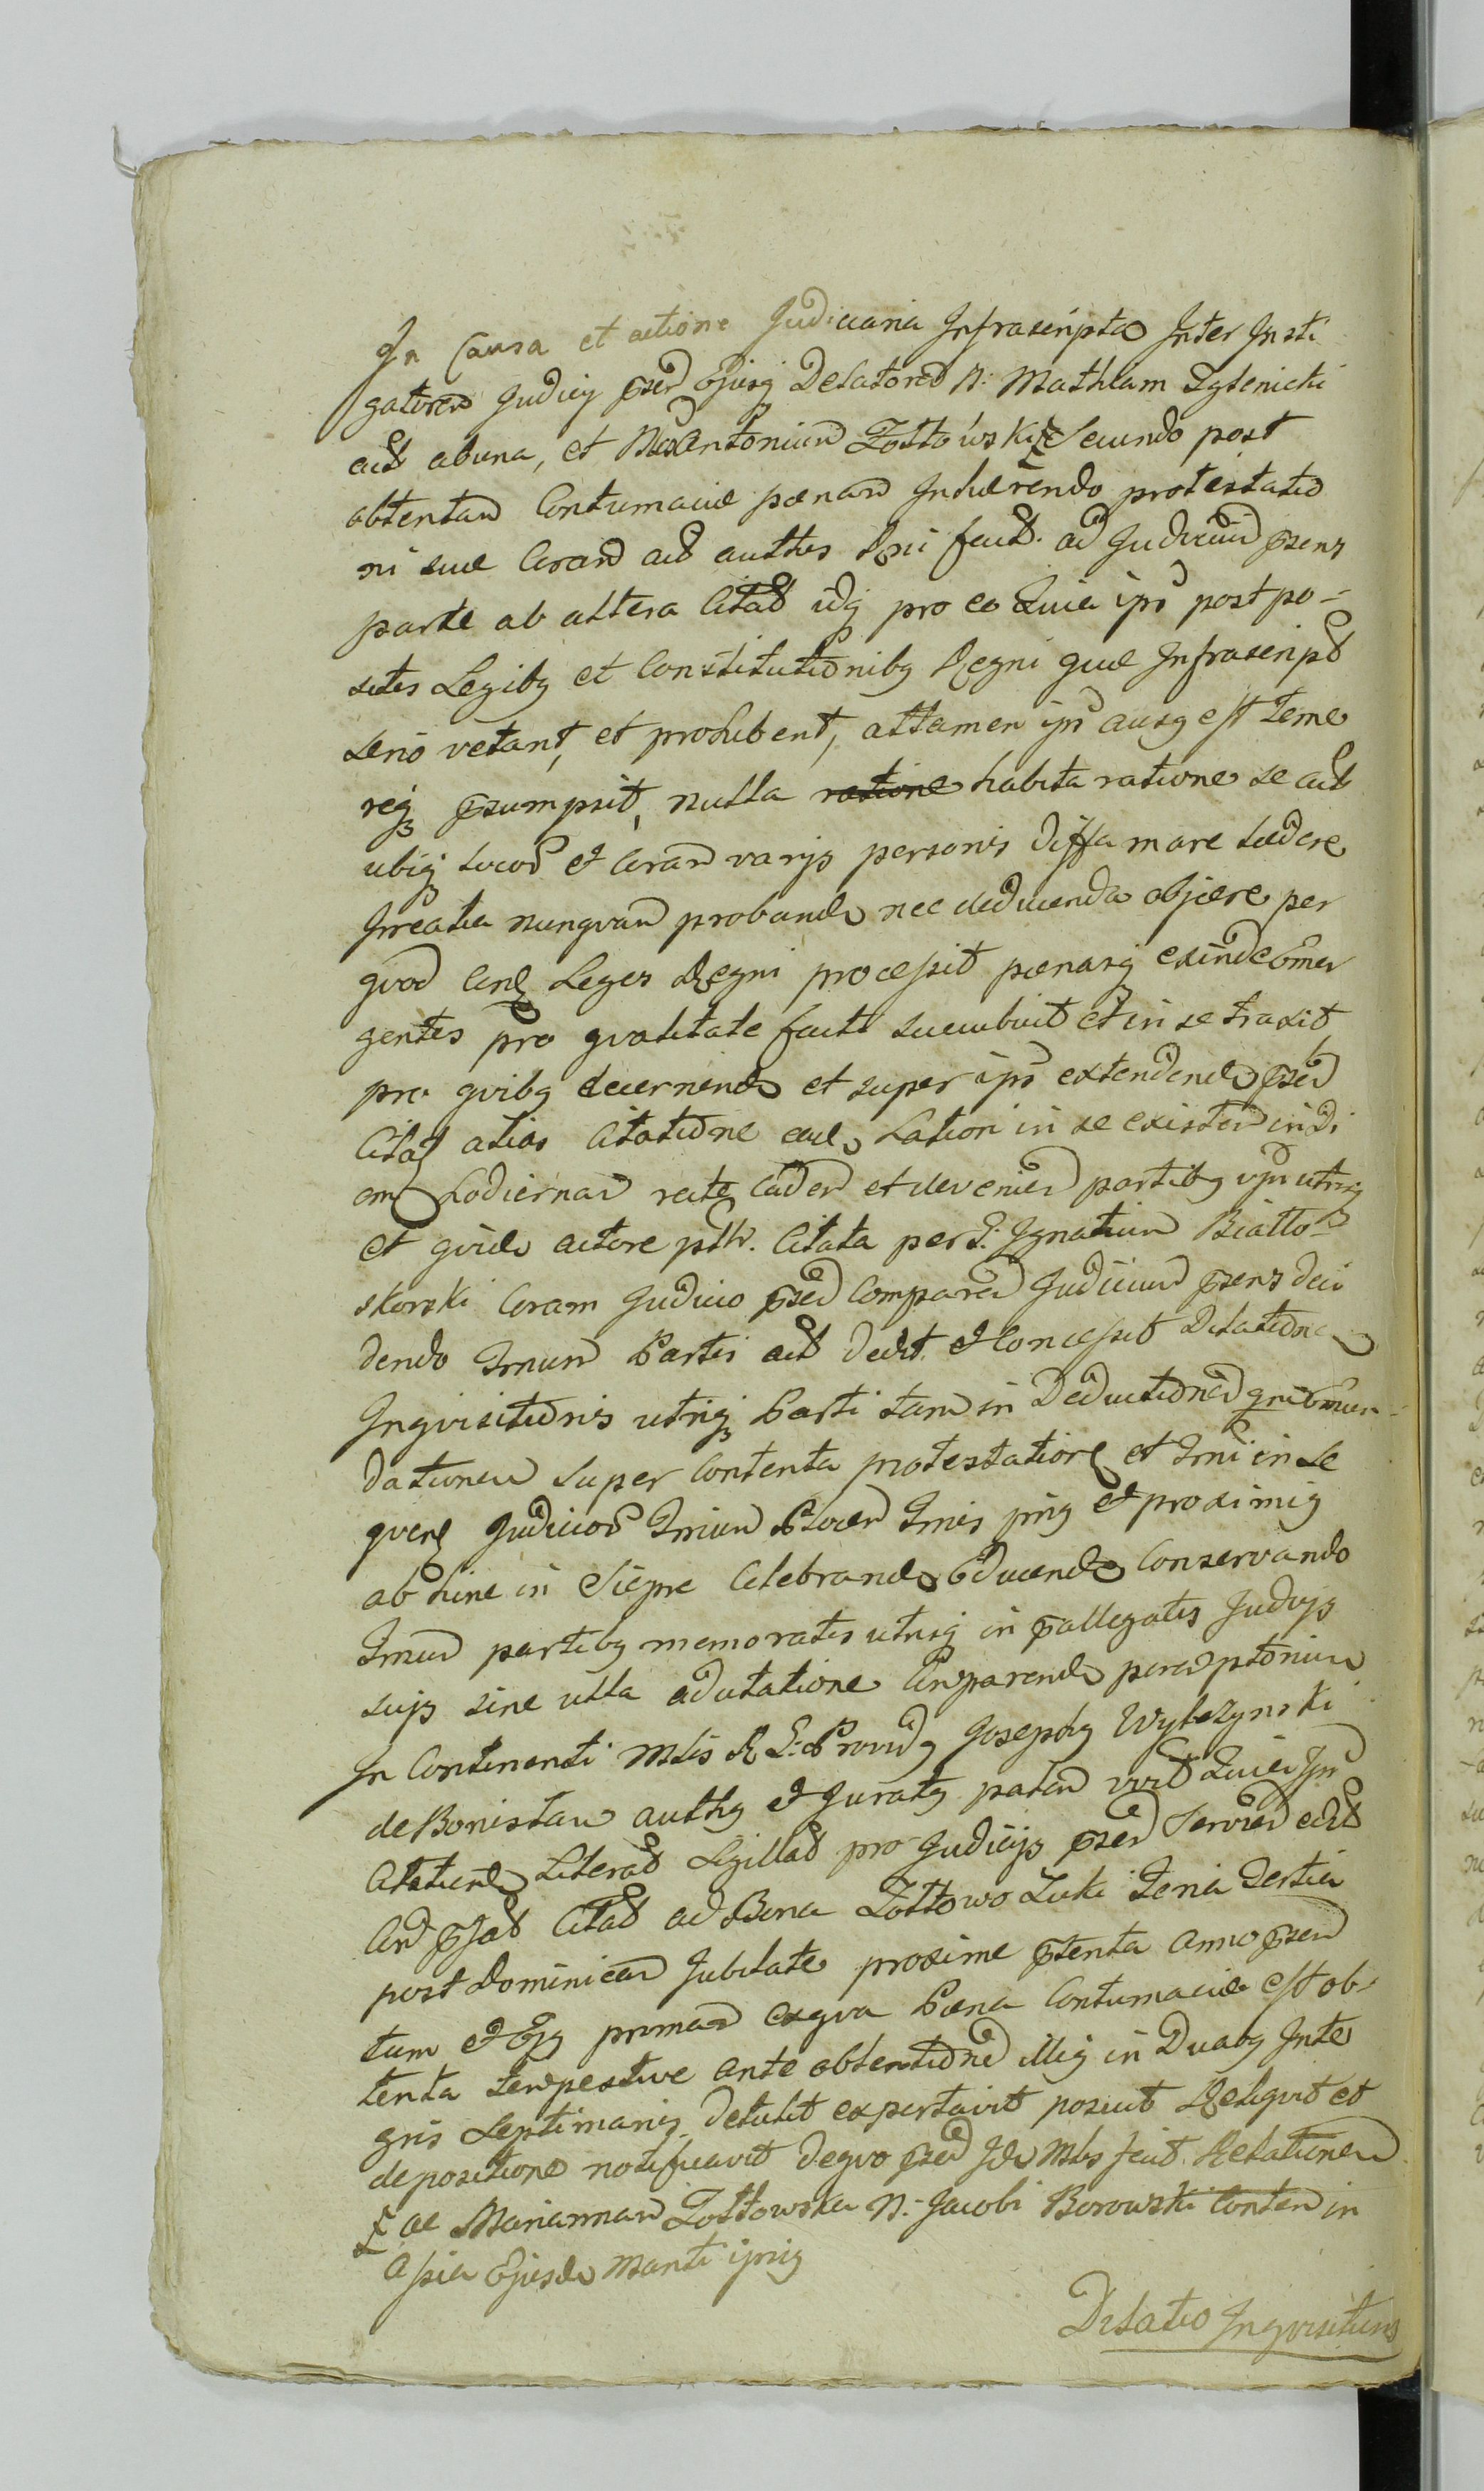 In Causa et actione Judiciaria Infrascripta Inter Insti
gatorem Judicij pnt Ejusq Delatorem N: Mathiam Zglenicki
act abuna, et N Antonium Zołtowski Secundo post
obtentam Contumaciae paenam Inhaerendo protestatio
ni suae Coram act authen Rni fact. ad Judicium psens
parte ab altera Citat idq pro eo Quia ips post po-
sitis Legibq et Constitutionibq Regni quae Infrascript
serio vetant, et prohibent, attamen ips ausq est Teme
req psumpsit, nulla ratione habita ratione se act
ubiq locor et Coram varijs personis diffamare laedere
Irreatu nunqvam proband nec deducenda objicere per
qvod Cont Leges Regni processit paenasq exinde Emer
gentes pro qvalitate facti succubuit et in se traxit
pro qvibq decernend et super ips extendend psen
Citat alias Citatione ead Lation in se existen indi
em hodiernam recte caden et devenien partibq ips utrisq
et qvide actore psnlr. Citata per G. Ignatium Białło-
skorski Coram Judicio psen Comparen Judicium psens deci
dendo Tmnum Parti act dedit et Concessit Dilatione
Inqvisitionis utriq Parti tam in Deductionem qm Emun-
dationem super Contenta protestatione et Tmni in Se
qven Judicior Tmnum Tmnis pnis et proximis
ab hinc in Sieprc Celebrand Educend Conservando
Tmnum partibq memoratis utrisq in pallegatis Judijs
suis sine ulla adcitatione Comparend peremptorium
In Continenti Mlis R G. Providq Josephq Wyłazynski
de Bonislaw authq et Juratq palam vivt Quia Ips
Citation Literat Sigillat pro Judicijs psen Servien edit
Con psat Citat ad Bona Zołtowo Luki Feria Tertia
post Dominicam Jubilate proxime pterita Anno psen
tum et Ejq primam exqva Paena Contumaciae est ob-
tenta tempestive ante obtentionem illiq in Duabq Inte
gris Septimanis detulit exportavit posuit Reliqvit et
depositione notificavit deqvo psen Ide Mlis fecit Relationem
ac Mariannam Zołtowska N. Jacobi Borowski Conten in
Assia Ejusde Marti ipsiq
Dilatio Inqvisitions